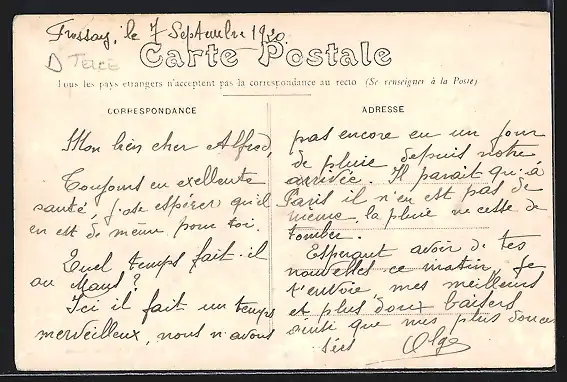 Frossay, le 7 Septembre 1930.
D TERCE
Carte Postale
Tous les pays étrangers n'acceptent pas la correspondance au recto (Se renseigner à la Poste)
CORRESPONDANCE
Mon bien cher Alfred,
Toujours en exellente
santé, j'ose espérer qu'il
en est de même pour toi.
Quel temps fait-il
au Mans ?
Ici il fait un temps
merveilleux, nous n'avons
ADRESSE
pas encore eu un jour
de pluie depuis notre
arrivée. Il parait qu'à
Paris il n'en est pas de
meme, la pluie ne cesse de
tomber.
Esperant avoir de tes
nouvelles ce matin, je
t'envoie mes meilleurs
et plus doux baisers
ainsi que mes plus douces
Olga